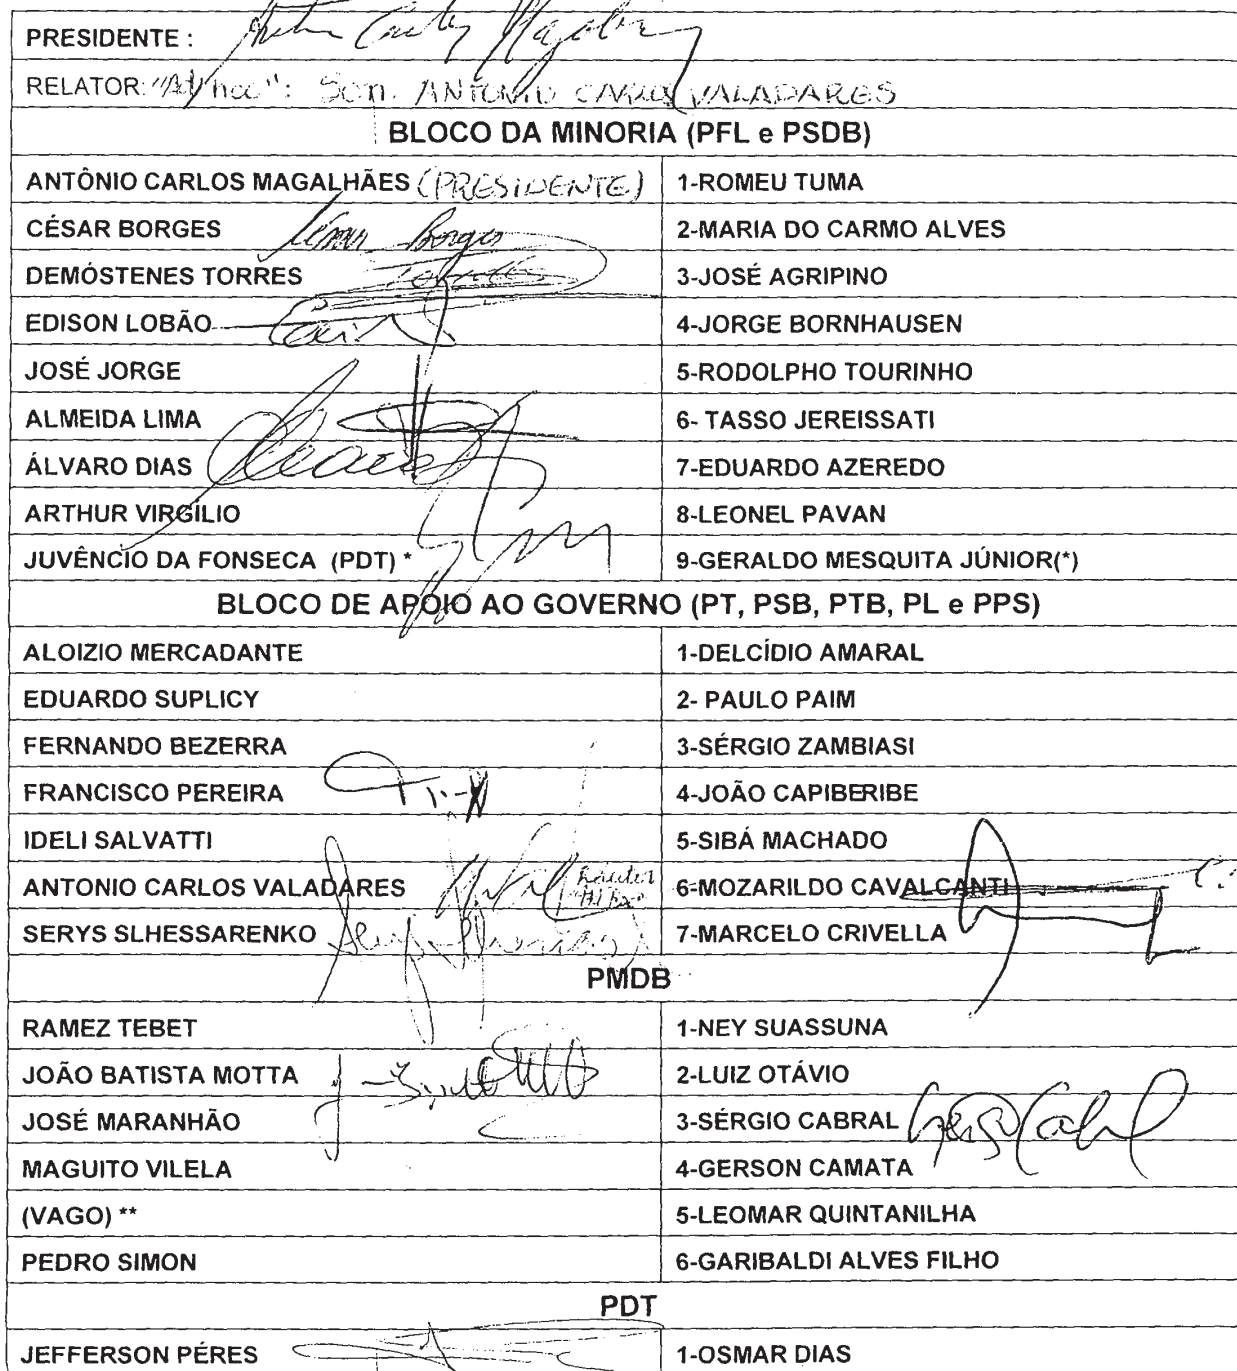 PRESIDENTE :
RELATOR: "Ad hoc": Sen. ANTONIO CARLOS VALADARES
BLOCO DA MINORIA (PFL e PSDB)
ANTÔNIO CARLOS MAGALHÃES (PRESIDENTE) 1-ROMEU TUMA
CÉSAR BORGES César Borges 2-MARIA DO CARMO ALVES
DEMÓSTENES TORRES 3-JOSÉ AGRIPINO
EDISON LOBÃO 4-JORGE BORNHAUSEN
JOSÉ JORGE 5-RODOLPHO TOURINHO
ALMEIDA LIMA 6- TASSO JEREISSATI
ÁLVARO DIAS 7-EDUARDO AZEREDO
ARTHUR VIRGÍLIO 8-LEONEL PAVAN
JUVÊNCIO DA FONSECA (PDT) * 9-GERALDO MESQUITA JÚNIOR(*)
BLOCO DE APOIO AO GOVERNO (PT, PSB, PTB, PL e PPS)
ALOIZIO MERCADANTE 1-DELCÍDIO AMARAL
EDUARDO SUPLICY 2- PAULO PAIM
FERNANDO BEZERRA 3-SÉRGIO ZAMBIASI
FRANCISCO PEREIRA 4-JOÃO CAPIBERIBE
IDELI SALVATTI 5-SIBÁ MACHADO
ANTONIO CARLOS VALADARES 6-MOZARILDO CAVALCANTI
SERYS SLHESSARENKO 7-MARCELO CRIVELLA
PMDB
RAMEZ TEBET 1-NEY SUASSUNA
JOÃO BATISTA MOTTA 2-LUIZ OTÁVIO
JOSÉ MARANHÃO 3-SÉRGIO CABRAL
MAGUITO VILELA 4-GERSON CAMATA
(VAGO) ** 5-LEOMAR QUINTANILHA
PEDRO SIMON 6-GARIBALDI ALVES FILHO
PDT
JEFFERSON PÉRES 1-OSMAR DIAS